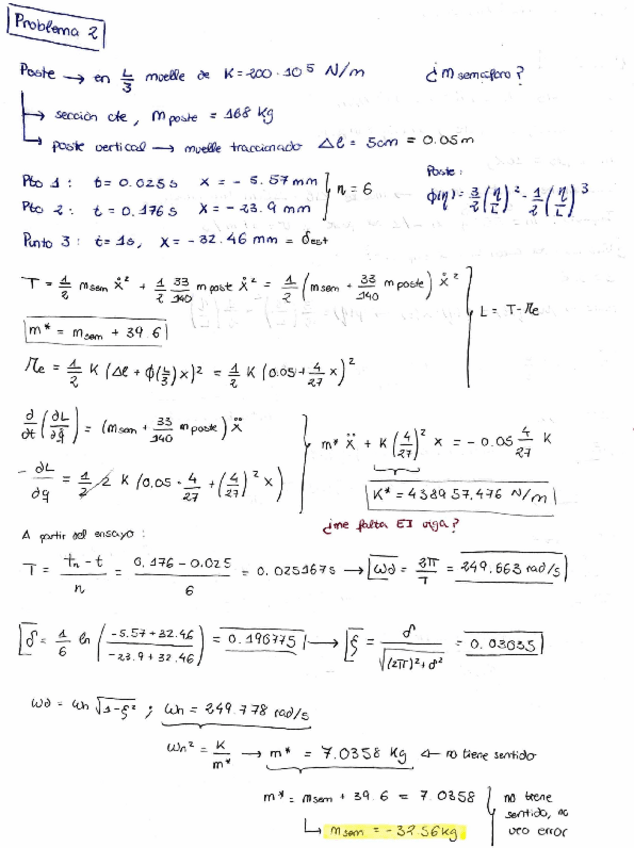 Problema 2
Poste → en L/3 muelle de K = 200·10^5 N/m ¿m semáforo?
→ sección cte, m poste = 168 kg
→ poste vertical → muelle traccionado Δl = 5cm = 0.05m
Pto 1: t = 0.025 s x = -5.57 mm
Pto 2: t = 0.176 s x = -23.9 mm
n = 6
Poste:
ϕ(η) = 3/2 (η/L)^2 - 1/2 (η/L)^3
Punto 3: t = 1s, x = -32.46 mm = δest
T = 1/2 m sem ẋ^2 + 1/2 33/140 m poste ẋ^2 = 1/2 (m sem + 33/140 m poste) ẋ^2
m* = m sem + 39.6
L = T - πe
πe = 1/2 K (Δl + ϕ(L/3)x)^2 = 1/2 K (0.05 + 4/27 x)^2
∂/∂t (∂L/∂q̇) = (m sem + 33/140 m poste) ẍ
- ∂L/∂q = 1/2 2 K (0.05 · 4/27 + (4/27)^2 x)
m* ẍ + K (4/27)^2 x = -0.05 4/27 K
K* = 438957.476 N/m
¿me falta EI viga?
A partir del ensayo:
T = tn - t / n = 0.176 - 0.025 / 6 = 0.0251675 → ωd = 2π/T = 249.663 rad/s
δ = 1/6 ln (-5.57 + 32.46 / -23.9 + 32.46) = 0.190775 → ξ = δ / √((2π)^2 + δ^2) = 0.03035
ωd = ωn √1-ξ^2 ; ωn = 249.778 rad/s
ωn^2 = K/m* → m* = 7.0358 Kg ← no tiene sentido
m* = m sem + 39.6 = 7.0358
→ m sem = -32.56 kg
no tiene
sentido, no
veo error